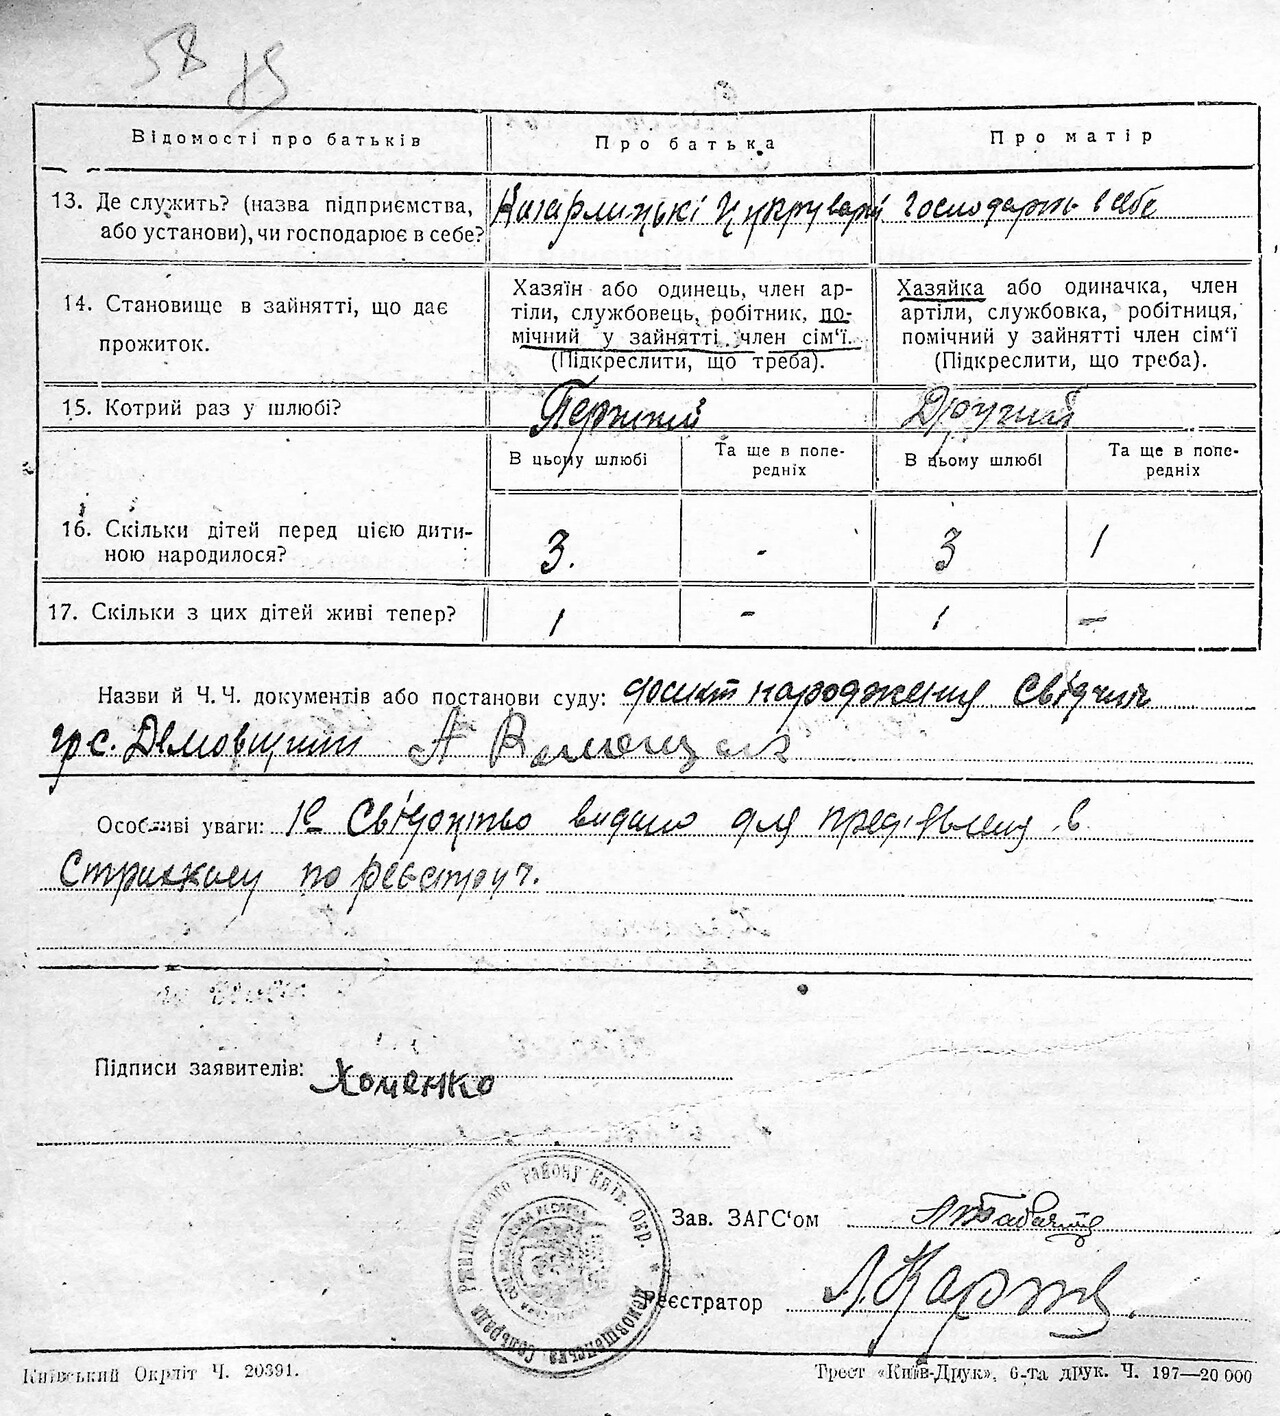 58
Відомості про батьків
Про батька
Про матір
13. Де служить? (назва підприємства,
або установи), чи господарює в себе?
Кагарлицькі Цукрувари
Господарть в себе
14. Становище в зайнятті, що дає
прожиток.
Хазяїн або одинець, член ар-
тіли, службовець, робітник, по-
мічний у зайнятті член сім'ї.
(Підкреслити, що треба).
Хазяйка або одиначка, член
артіли, службовка, робітниця,
помічний у зайнятті член сім'ї
(Підкреслити, що треба).
15. Котрий раз у шлюбі?
Перший
Другий
В цьому шлюбі
Та ще в попе-
редніх
В цьому шлюбі
Та ще в попе-
редніх
16. Скільки дітей перед цією дити-
ною народилося?
3.
-
3
1
17. Скільки з цих дітей живі тепер?
1
-
1
-
Назви й Ч. Ч. документів або постанови суду: факт народження Свідчить
гр с. Демовщини
Особливі уваги: Свідоцтво видано для в
по
Підписи заявителів: Хоменко
Ржищівського району Київ. Окр. * Демовщинська Сельрада
Зав. ЗАГС'ом
Реєстратор
Київський Окрліт Ч. 20391.
Трест «Київ-Друк», 6-та друк. Ч. 197—20 000